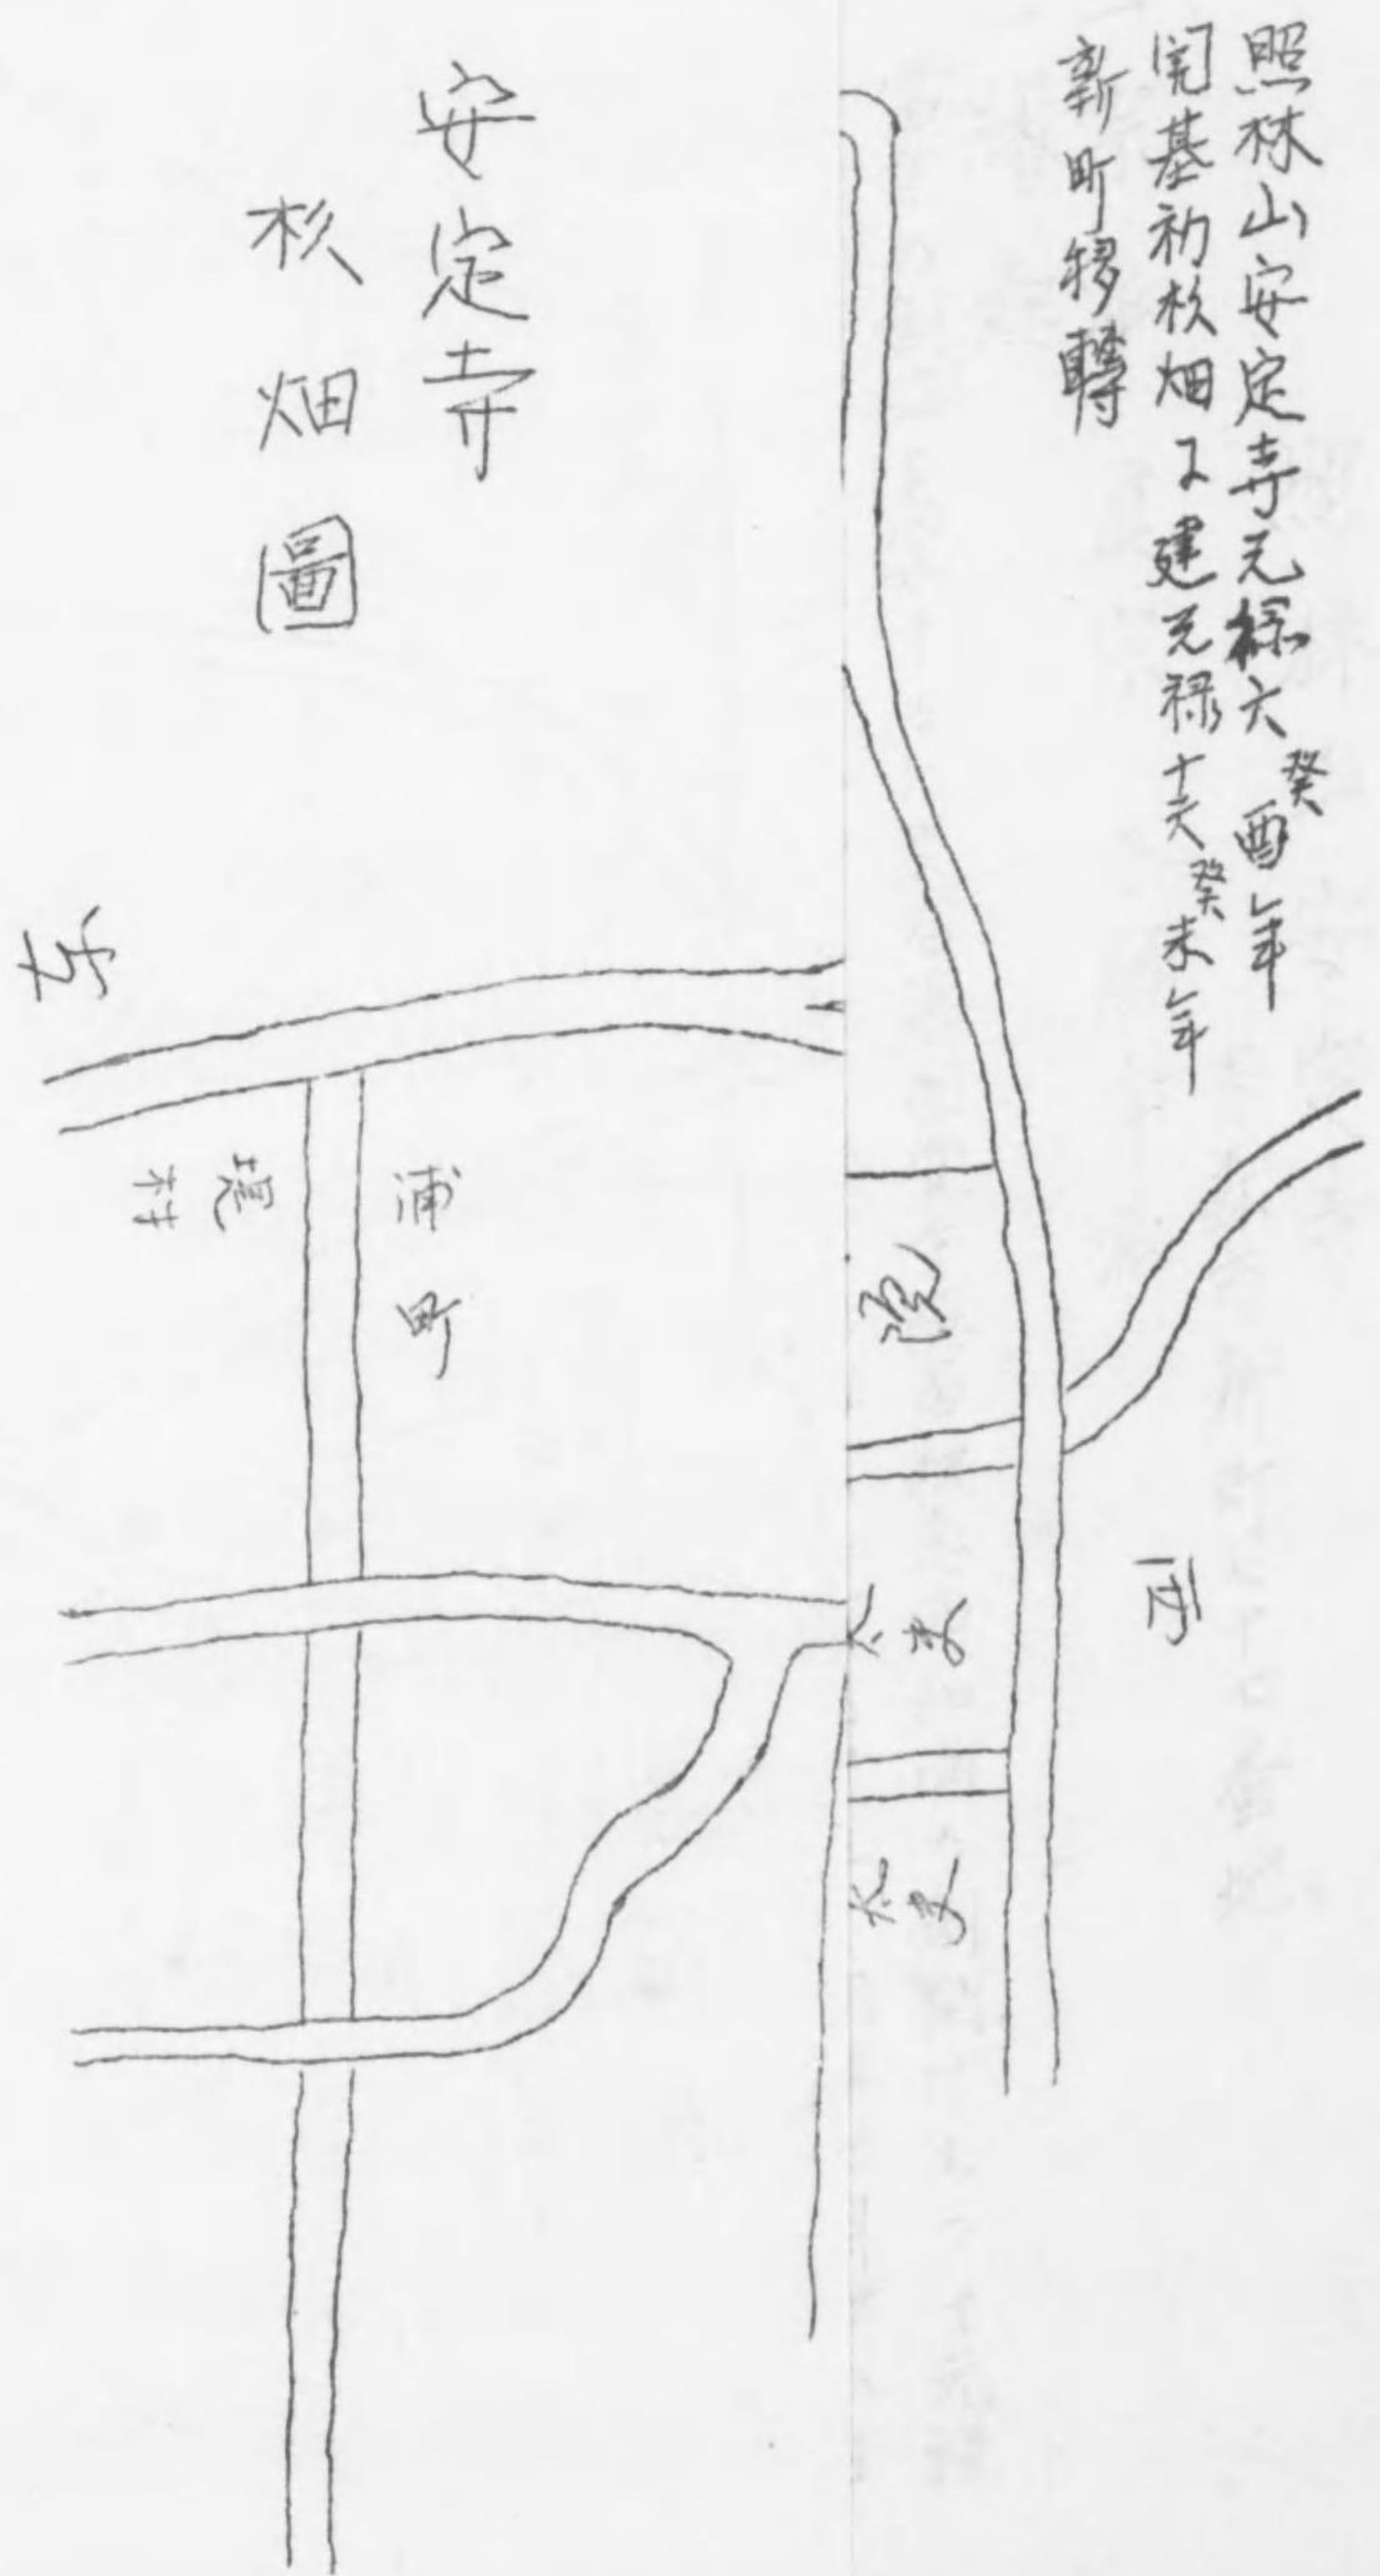 照林山安定寺元禄六癸酉年
開基初杉畑ニ建元禄十六癸未年
新町移轉
安定寺
杉畑圖
西
浦町
堤村